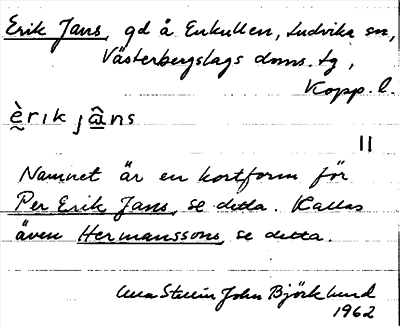 Erik Jans, gd å Enkullen, Ludvika sn,
Västerbergslags doms. tg,
Kopp. l.
èrik jâns
||
Namnet är en kortform för
Per Erik Jans, se detta. Kallas
även Hermanssons, se detta.
John Björklund
1962